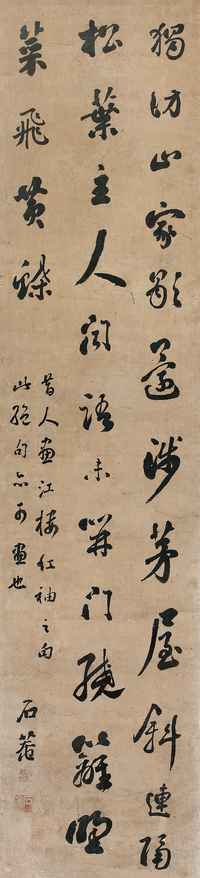 獨訪山家歇還涉茅屋斜連隔
松葉主人聞語未開門繞籬野
菜飛黃蝶
昔人畫江樓紅袖之句
此絕句亦可畫也
石菴